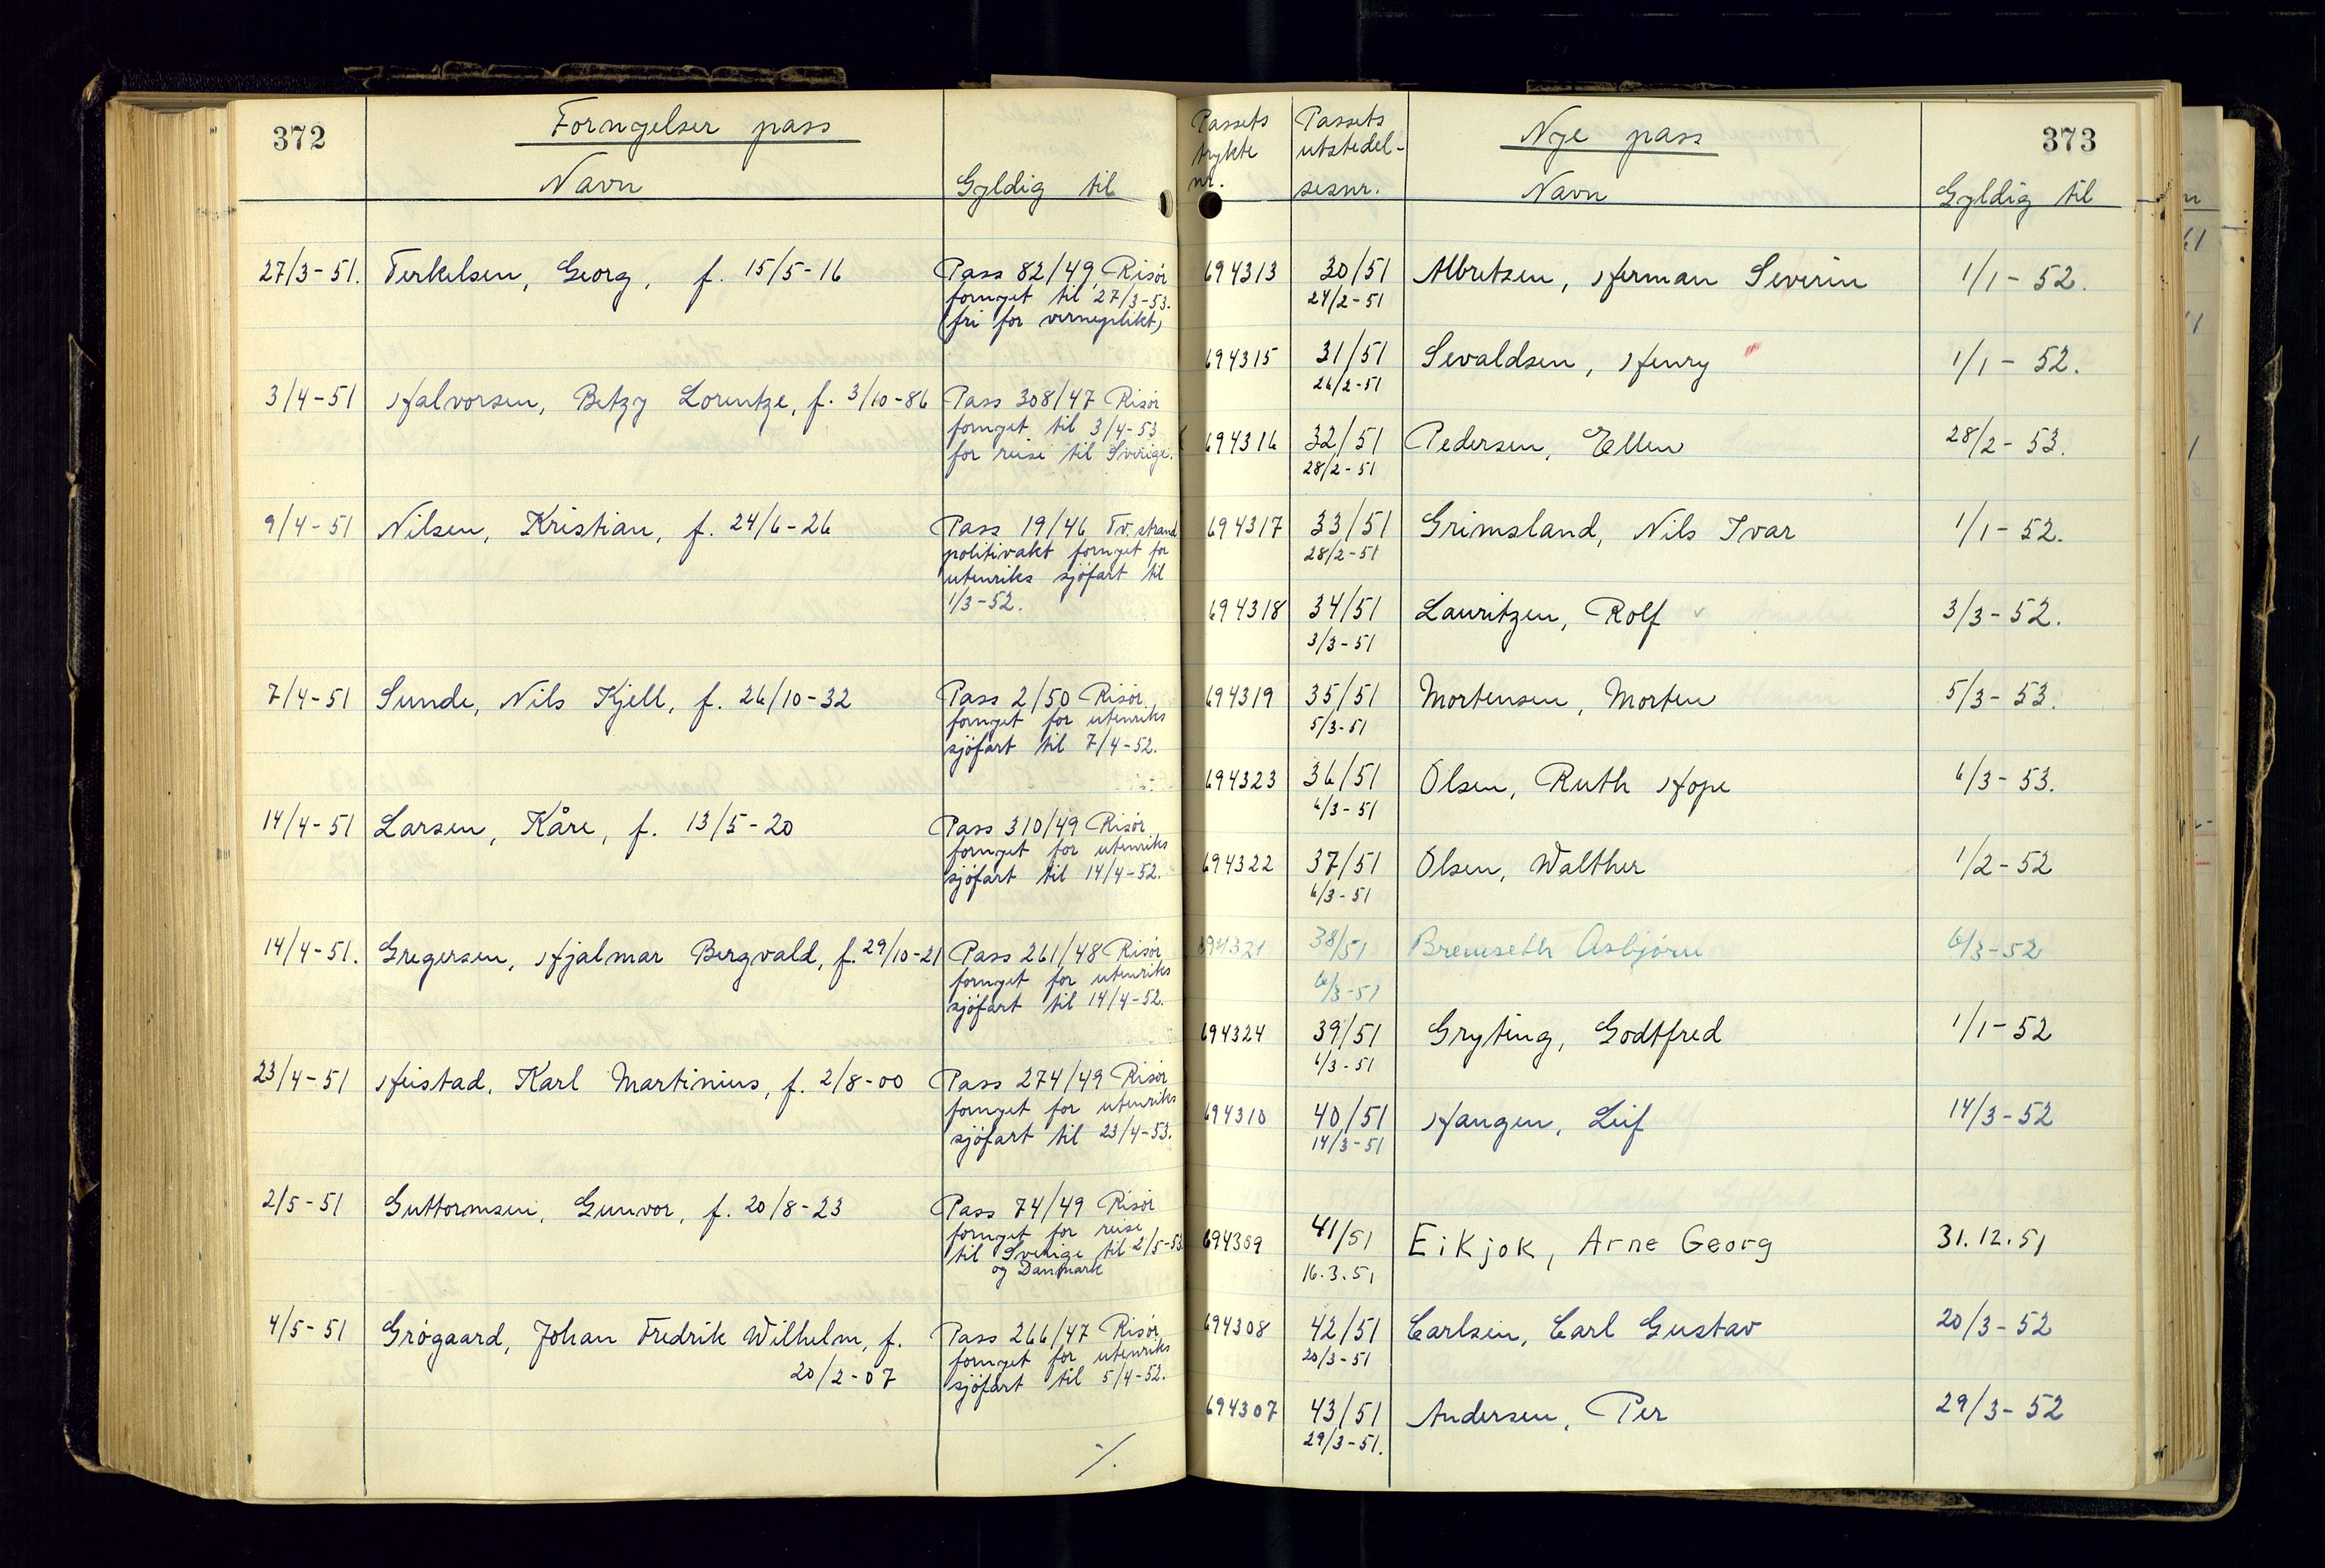 372
Fornyelser pass
Navn
Gyldig til
27/3-51. Terkelsen, Georg, f. 15/5-16
Pass 82/49, Risör
fornyet til 27/3-53.
(fri for verneplikt)
3/4-51 Halvorsen, Betzy Lorentze, f. 3/10-86
Pass 308/47 Risör
fornyet til 3/4-53
for reise til Sverige.
9/4-51 Nilsen, Kristian, f. 24/6-26
Pass 19/46 Tv.strand
politivakt fornyet for
utenriks sjöfart til
1/3-52.
7/4-51 Sunde, Nils Kjell, f. 26/10-32
Pass 2/50 Risör,
fornyet for utenriks
sjöfart til 7/4-52.
14/4-51 Larsen, Kåre, f. 13/5-20
Pass 310/49 Risör,
fornyet for utenriks
sjöfart til 14/4-52.
14/4-51. Gregersen, Hjalmar Bergvald, f. 29/10-21
Pass 261/48 Risör
fornyet for utenriks
sjöfart til 14/4-52.
23/4-51 Heistad, Karl Martinius, f. 2/8-00
Pass 274/49 Risör
fornyet for utenriks
sjöfart til 23/4-53.
2/5-51 Guttormsen, Gunvor, f. 20/8-23
Pass 74/49 Risör
fornyet for reise
til Sverige til 2/5-53
og Danmark
4/5-51 Grögaard, Johan Fredrik Wilhelm, f.
20/2-07
Pass 266/47 Risör,
fornyet for utenriks
sjöfart til 5/4-52.
./.
373
Passets
trykte
nr.
Passets
utstedel-
sesnr.
Nye pass
Navn
Gyldig til
694313 30/51 Albretsen, Herman Severin 1/1-52.
24/2-51
694315 31/51 Sevaldsen, Henry 1/1-52.
26/2-51
694316 32/51 Pedersen, Ellen 28/2-53.
28/2-51
694317 33/51 Grimsland, Nils Ivar 1/1-52.
28/2-51
694318 34/51 Lauritzen, Rolf 3/3-52.
3/3-51
694319 35/51 Mortensen, Morten 5/3-53.
5/3-51
694323 36/51 Olsen, Ruth Hope 6/3-53.
6/3-51
694322 37/51 Olsen, Walther 1/2-52
6/3-51
694321 38/51 Bremseth Asbjörn 6/3-52
6/3-51
694324 39/51 Gryting, Godtfred 1/1-52
6/3-51
694310 40/51 Haugen, Leif 14/3-52
14/3-51
694309 41/51 Eikjok, Arne Georg 31.12.51
16.3.51
694308 42/51 Carlsen, Carl Gustav 20/3-52
20/3-51
694307 43/51 Andersen, Per 29/3-52
29/3-51.